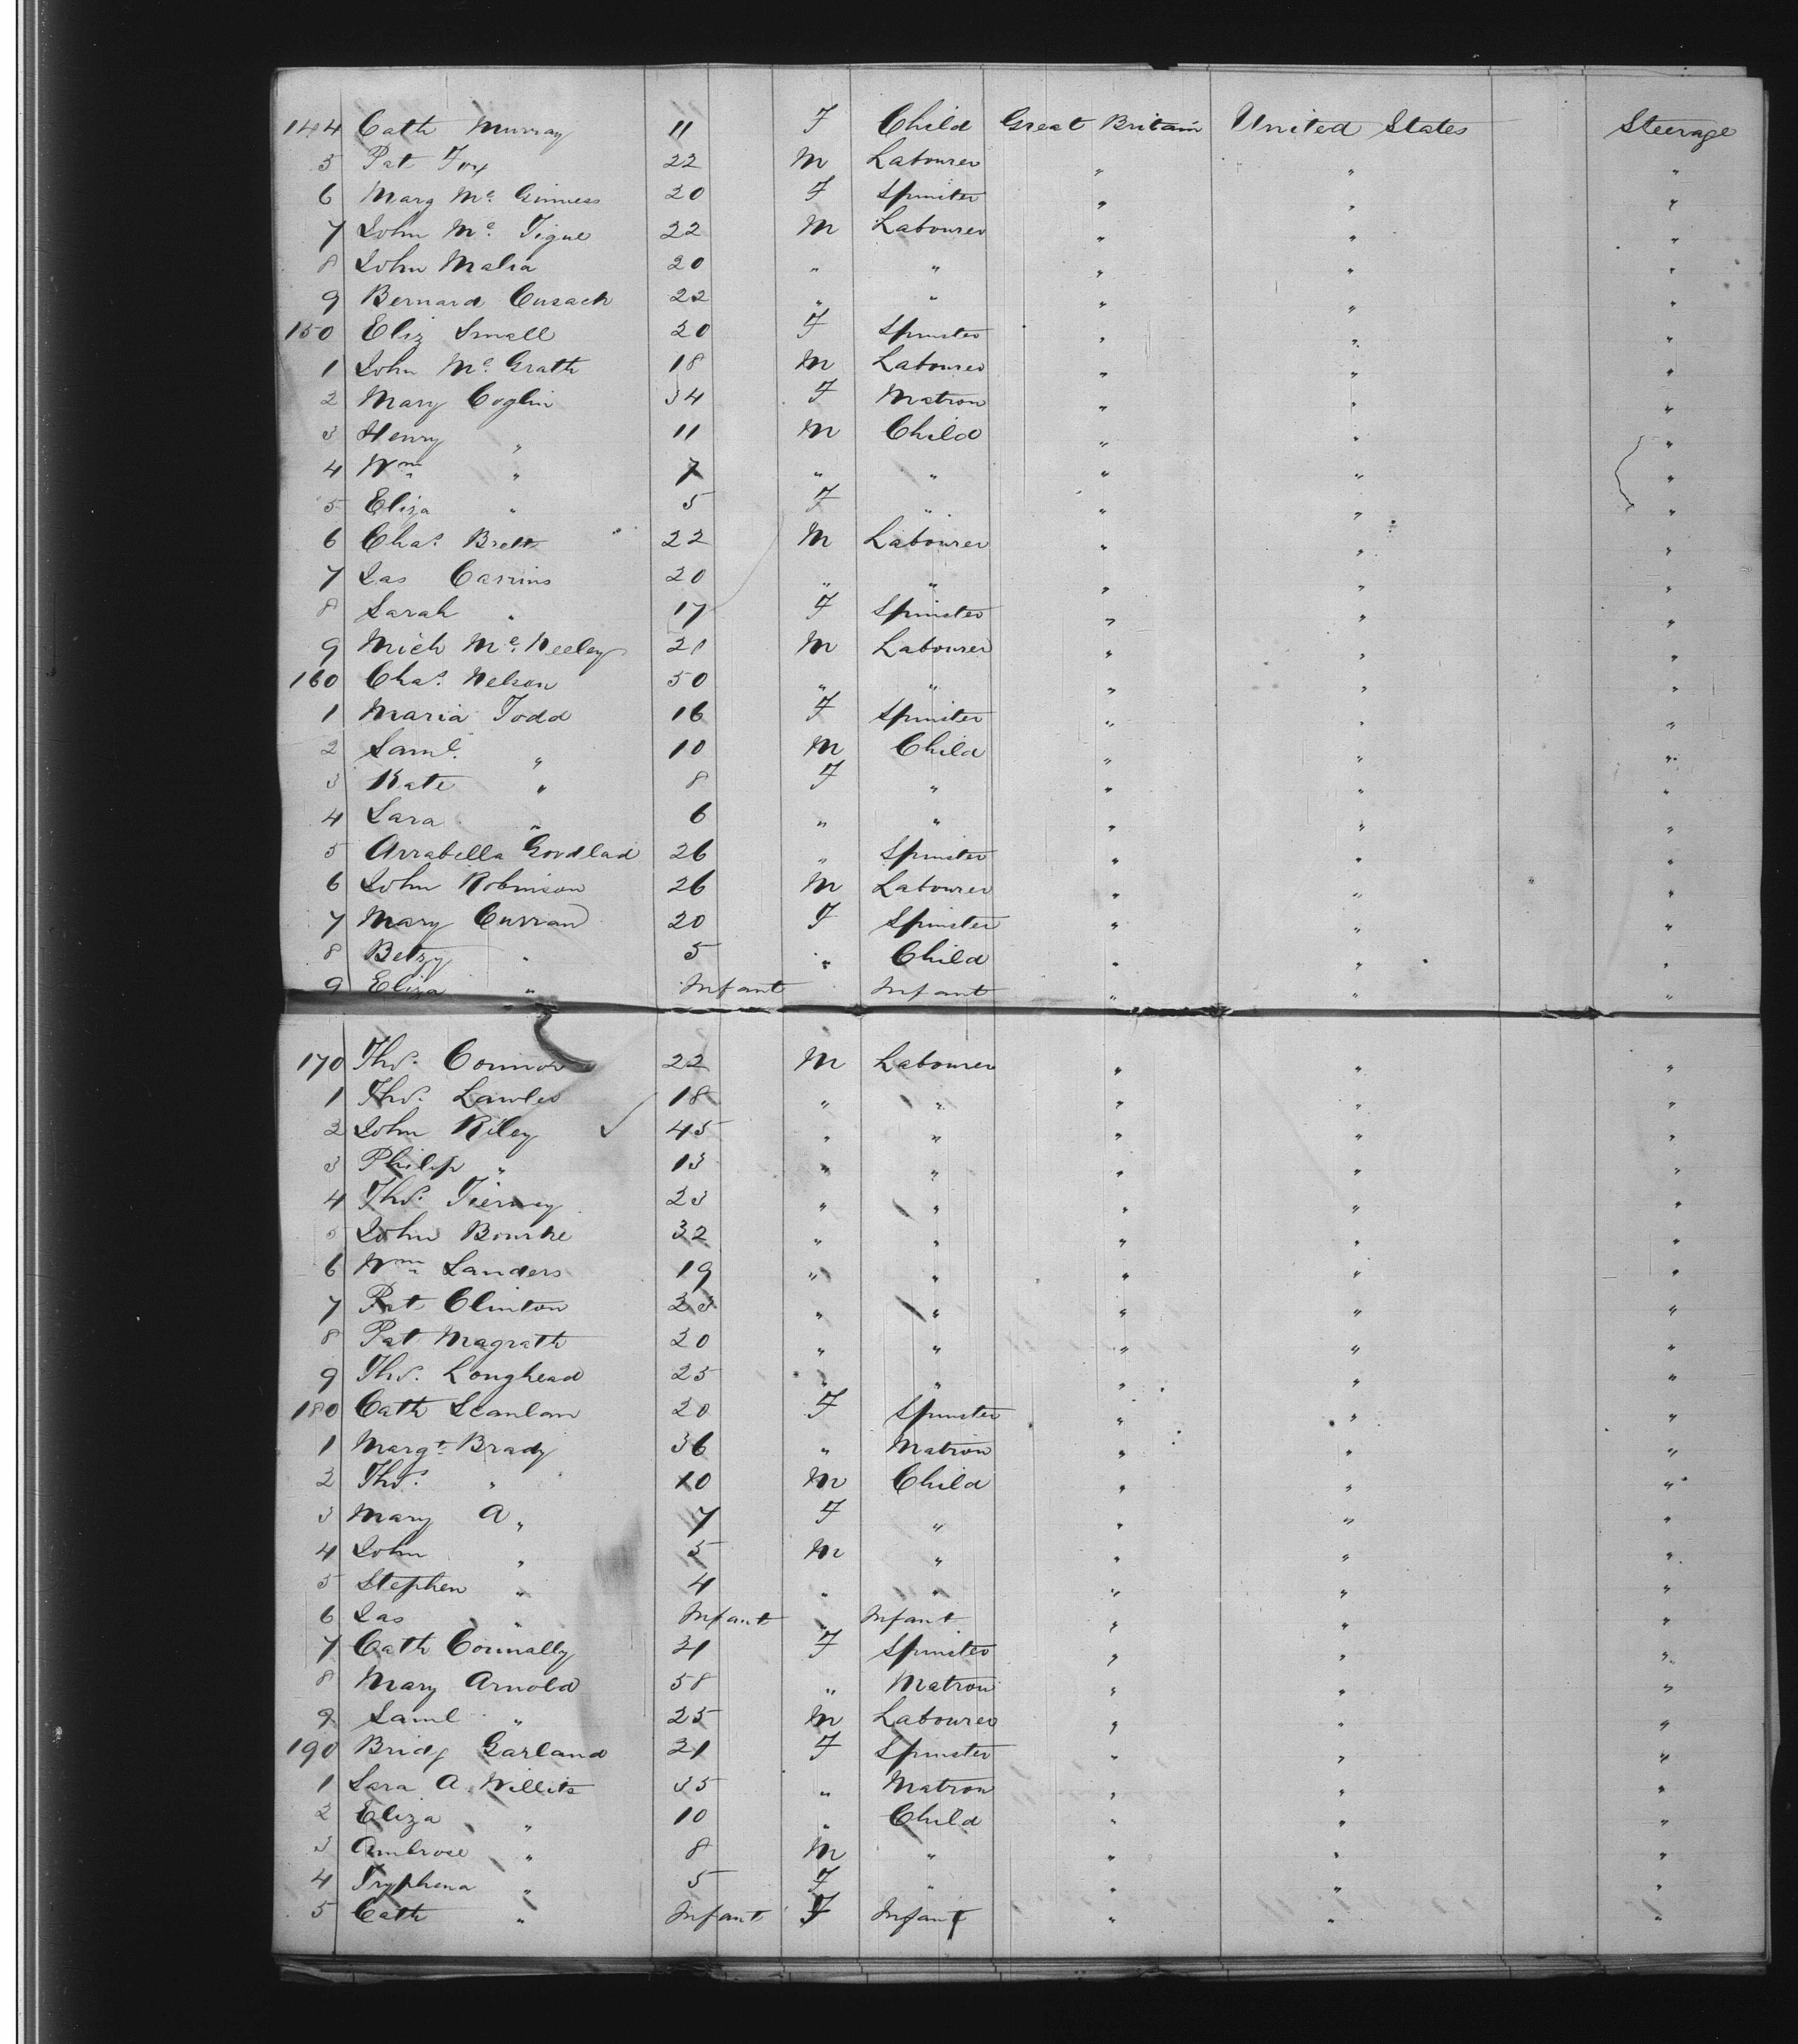 144 Cath Murray 11 F Child Great Britain United States Steerage
5 Pat Fox 22 M Labourer " " "
6 Marg Mc Ginness 20 F Spinster " " "
7 John Mc Tigue 22 M Labourer " " "
8 John Malia 20 " " " " "
9 Bernard Cusack 22 " " " " "
150 Eliz Small 20 F Spinster " " "
1 John Mc Grath 18 M Labourer " " "
2 Mary Coglin 34 F Matron " " "
3 Henry " 11 M Child " " "
4 Wm " 7 " " " " "
5 Eliza " 5 F " " " "
6 Chas. Brett 22 M Labourer " " "
7 Jas Carrins 20 " " " " "
8 Sarah " 17 F Spinster " " "
9 Mich Mc Neeley 21 M Labourer " " "
160 Chas. Nelson 50 " " " " "
1 Maria Todd 16 F Spinster " " "
2 Saml. " 10 M Child " " "
3 Kate " 8 F " " " "
4 Sara " 6 " " " " "
5 Arrabella Goodlad 26 " Spinster " " "
6 John Robinson 26 M Labourer " " "
7 Mary Curran 20 F Spinster " " "
8 Betsy " 5 " Child " " "
9 Eliza " Infant Infant " " "
170 Thos. Connor 22 M Labourer " " "
1 Thos. Lawler 18 " " " " "
2 John Riley 45 " " " " "
3 Philip " 13 " " " " "
4 Thos. Tierney 23 " " " " "
5 John Bourke 32 " " " " "
6 Wm Sanders 19 " " " " "
7 Pat Clinton 23 " " " " "
8 Pat Magrath 20 " " " " "
9 Thos. Longhead 25 " " " " "
180 Cath Scanlan 20 F Spinster " " "
1 Margt. Brady 36 " Matron " " "
2 Thos. " 10 M Child " " "
3 Mary A " 7 F " " " "
4 John " 5 M " " " "
5 Stephen " 4 " " " " "
6 Jas " Infant " Infant " " "
7 Cath Connally 21 F Spinster " " "
8 Mary Arnold 58 " Matron " " "
9 Saml " 25 M Labourer " " "
190 Bridg Garland 21 F Spinster " " "
1 Sara A. Willits 35 " Matron " " "
2 Eliza " 10 " Child " " "
3 Ambrose " 8 M " " " "
4 Tryphena " 5 F " " " "
5 Cath " Infant F Infant " " "